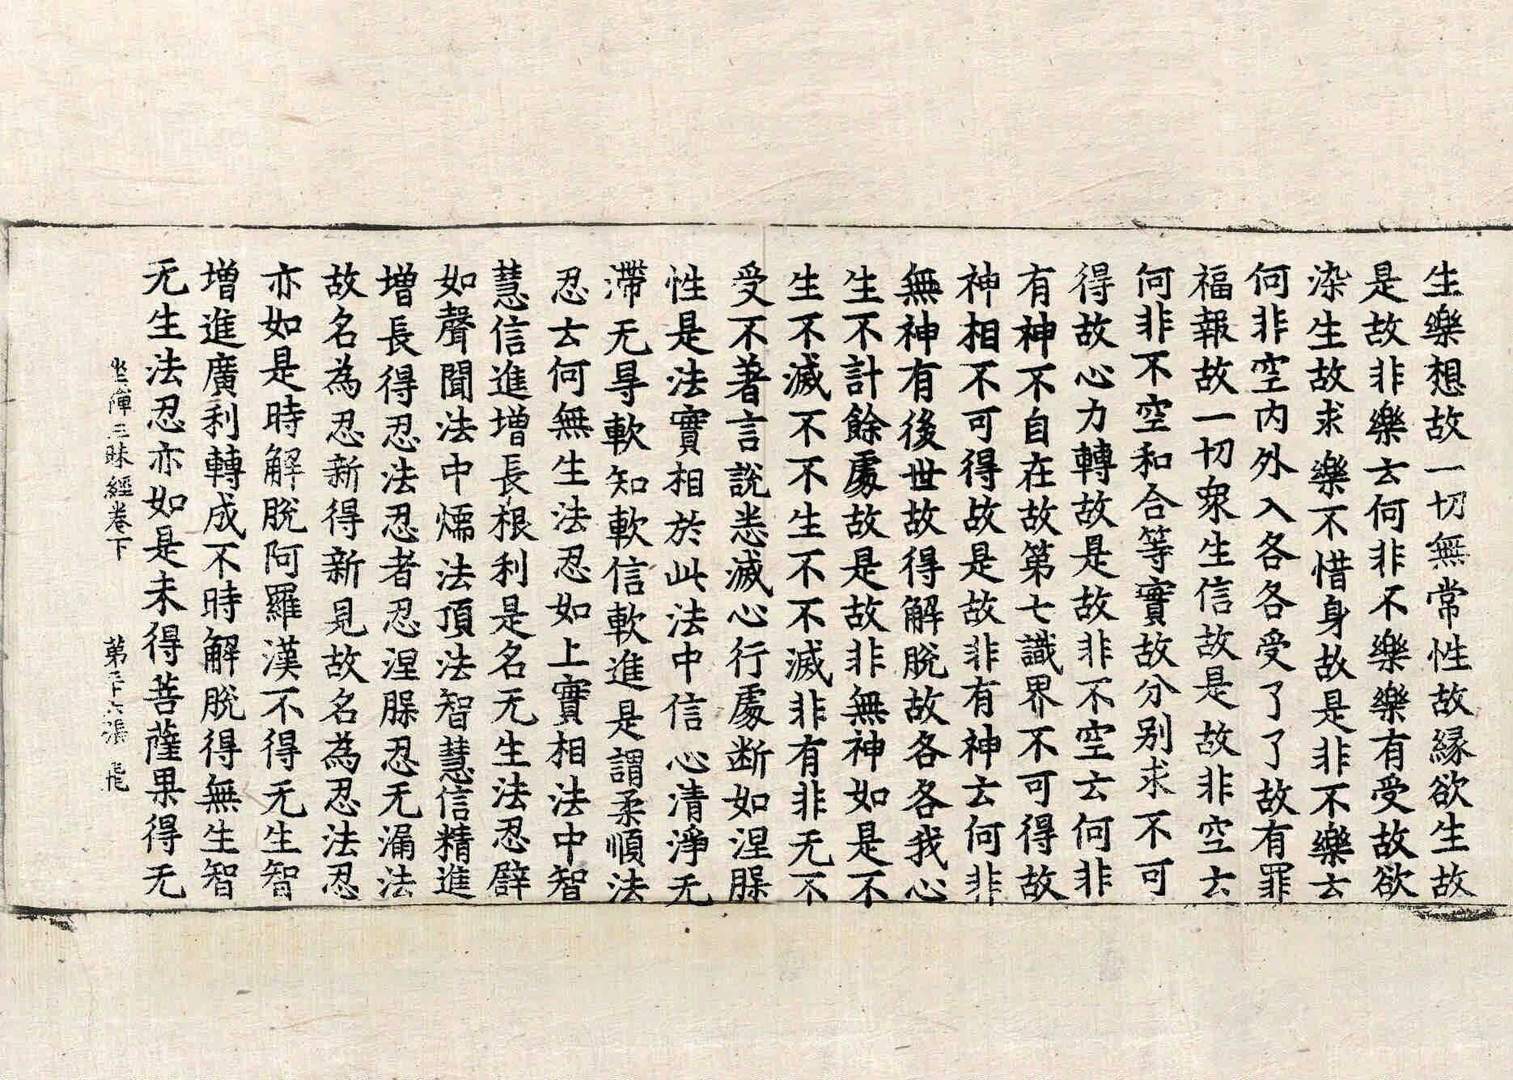 生樂想故一切無常性故緣欲生故
是故非樂云何非不樂樂有受故欲
染生故求樂不惜身故是非不樂云
何非空內外入各各受了了故有罪
福報故一切衆生信故是故非空云
何非不空和合等實故分別求不可
得故心力轉故是故非不空云何非
有神不自在故第七識界不可得故
神相不可得故是故非有神云何非
無神有後世故得解脫故各各我心
生不計餘處故是故非無神如是不
生不滅不不生不不滅非有非无不
受不著言說悉滅心行處断如涅槃
性是法實相於此法中信心清淨无
滯无㝵軟知軟信軟進是謂柔順法
忍云何無生法忍如上實相法中智
慧信進增長根利是名无生法忍譬
如聲聞法中煗法頂法智慧信精進
增長得忍法忍者忍涅槃忍无漏法
故名為忍新得新見故名為忍法忍
亦如是時解脫阿羅漢不得无生智
增進廣利轉成不時解脫得無生智
无生法忍亦如是未得菩薩果得无
坐禪三昧經卷下 第三十六張